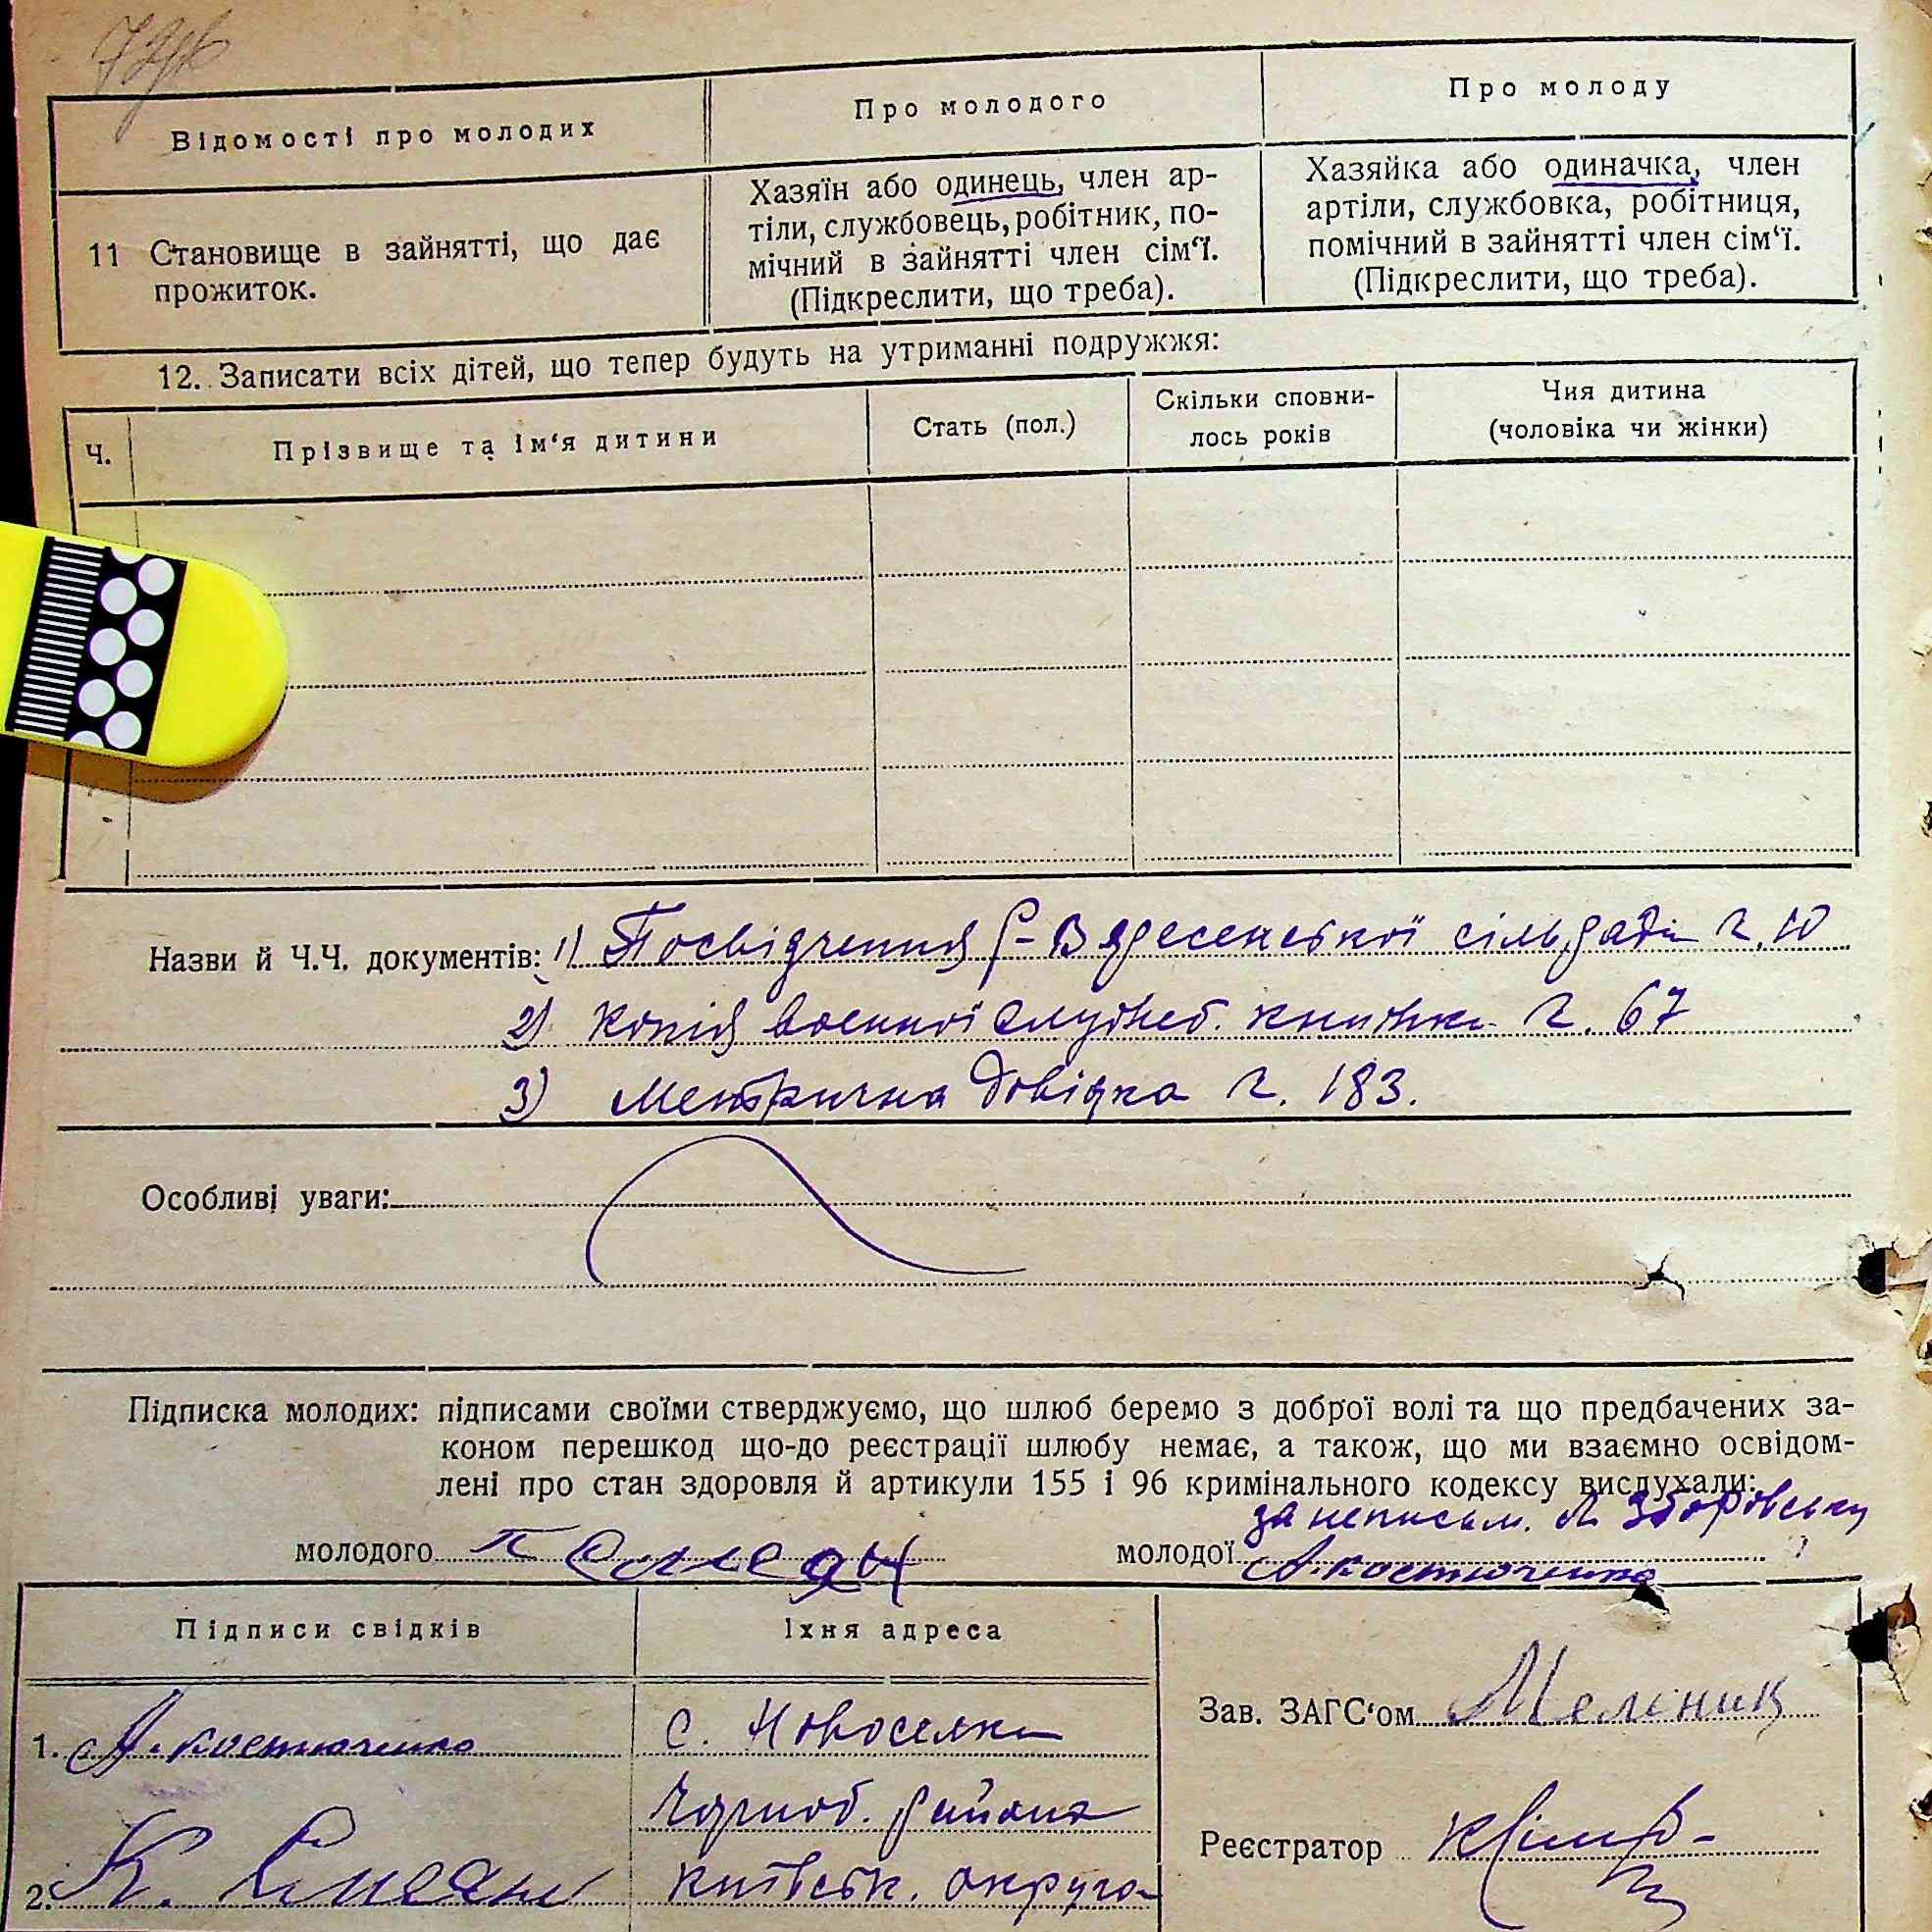 Відомості про молодих
Про молодого
Про молоду
11 Становище в зайнятті, що дає
прожиток.
Хазяїн або одинець, член ар-
тіли, службовець, робітник, по-
мічний в зайнятті член сім‘ї.
(Підкреслити, що треба).
Хазяйка або одиначка, член
артіли, службовка, робітниця,
помічний в зайнятті член сім‘ї.
(Підкреслити, що треба).
12. Записати всіх дітей, що тепер будуть на утриманні подружжя:
Ч.
Прізвище та ім‘я дитини
Стать (пол.)
Скільки сповни-
лось років
Чия дитина
(чоловіка чи жінки)
Назви й Ч.Ч. документів: 1) Посвідчення сільради ч. 10
2) Копія военної служеб. книжки ч. 67
3) Метрична довідка ч. 183.
Особливі уваги:
Підписка молодих: підписами своїми стверджуємо, що шлюб беремо з доброї волі та що предбачених за-
коном перешкод що-до реєстрації шлюбу немає, а також, що ми взаємно освідом-
лені про стан здоровля й артикули 155 і 96 кримінального кодексу вислухали:
за неписьм. Зборовську
молодого
молодої А. Костюченко
Підписи свідків
Їхня адреса
1. А. Костюченко
с. Новоселки
Чорноб. району
Київськ. округа
2. К.
Зав. ЗАГС‘ом Меленик
Реєстратор